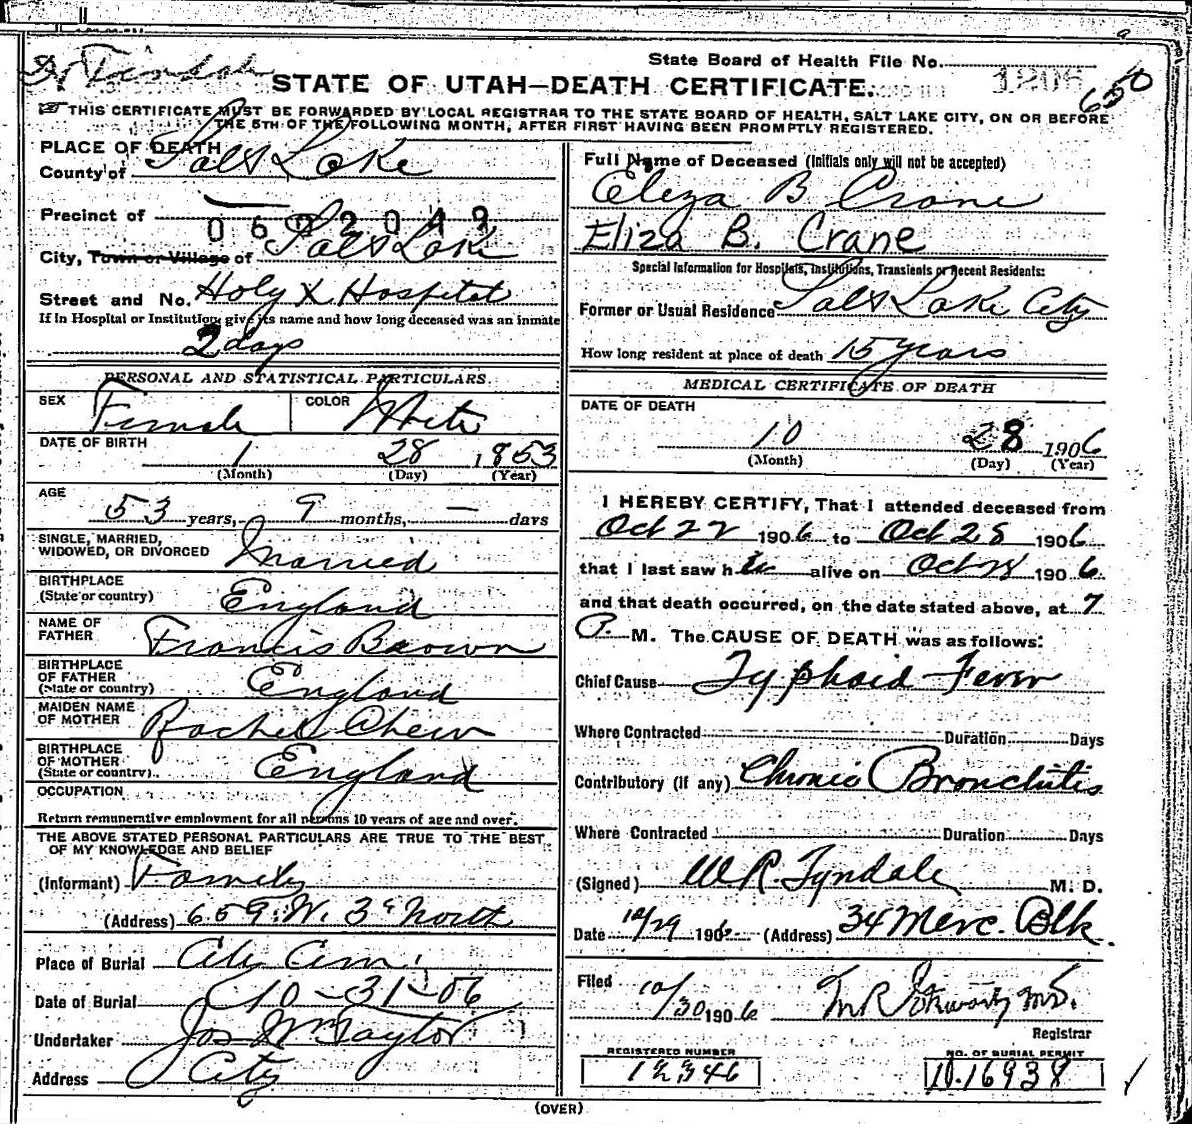 Dr Tindale
State Board of Health File No. 1206
650
STATE OF UTAH—DEATH CERTIFICATE.
THIS CERTIFICATE MUST BE FORWARDED BY LOCAL REGISTRAR TO THE STATE BOARD OF HEALTH, SALT LAKE CITY, ON OR BEFORE
THE 5TH OF THE FOLLOWING MONTH, AFTER FIRST HAVING BEEN PROMPTLY REGISTERED.
PLACE OF DEATH
County of Salt Lake
Precinct of
0602049
City, Town or Village of Salt Lake
Street and No. Holy X Hospital
If in Hospital or Institution, give its name and how long deceased was an inmate
2 days
PERSONAL AND STATISTICAL PARTICULARS.
SEX Female COLOR White
DATE OF BIRTH
1 28 1853
(Month) (Day) (Year)
AGE
53 years, 9 months, — days
SINGLE, MARRIED,
WIDOWED, OR DIVORCED Married
BIRTHPLACE
(State or country) England
NAME OF
FATHER Francis Brown
BIRTHPLACE
OF FATHER
(State or country) England
MAIDEN NAME
OF MOTHER Rachel Chew
BIRTHPLACE
OF MOTHER
(State or country) England
OCCUPATION
Return remunerative employment for all persons 10 years of age and over.
THE ABOVE STATED PERSONAL PARTICULARS ARE TRUE TO THE BEST
OF MY KNOWLEDGE AND BELIEF
(Informant) Family
(Address) 659 W. 3d North
Place of Burial City Cem.
Date of Burial 10-31-06
Undertaker Jos Wm Taylor
Address City
Full Name of Deceased (Initials only will not be accepted)
Eliza B Crane
Eliza B. Crane
Special Information for Hospitals, Institutions, Transients or Recent Residents:
Former or Usual Residence Salt Lake City
How long resident at place of death 15 years
MEDICAL CERTIFICATE OF DEATH
DATE OF DEATH
10 28 1906
(Month) (Day) (Year)
I HEREBY CERTIFY, That I attended deceased from
Oct 22 1906 to Oct 28 1906
that I last saw her alive on Oct 28 1906
and that death occurred, on the date stated above, at 7
P. M. The CAUSE OF DEATH was as follows:
Chief Cause Typhoid Fever
Where Contracted Duration Days
Contributory (if any) Chronic Bronchitis
Where Contracted Duration Days
(Signed) W R Tyndale M. D.
Date 10/29 1906 (Address) 34 Merc. Blk.
Filed 10/30 1906 M.D.
Registrar
REGISTERED NUMBER
12346
NO. OF BURIAL PERMIT
D.16938
(OVER)